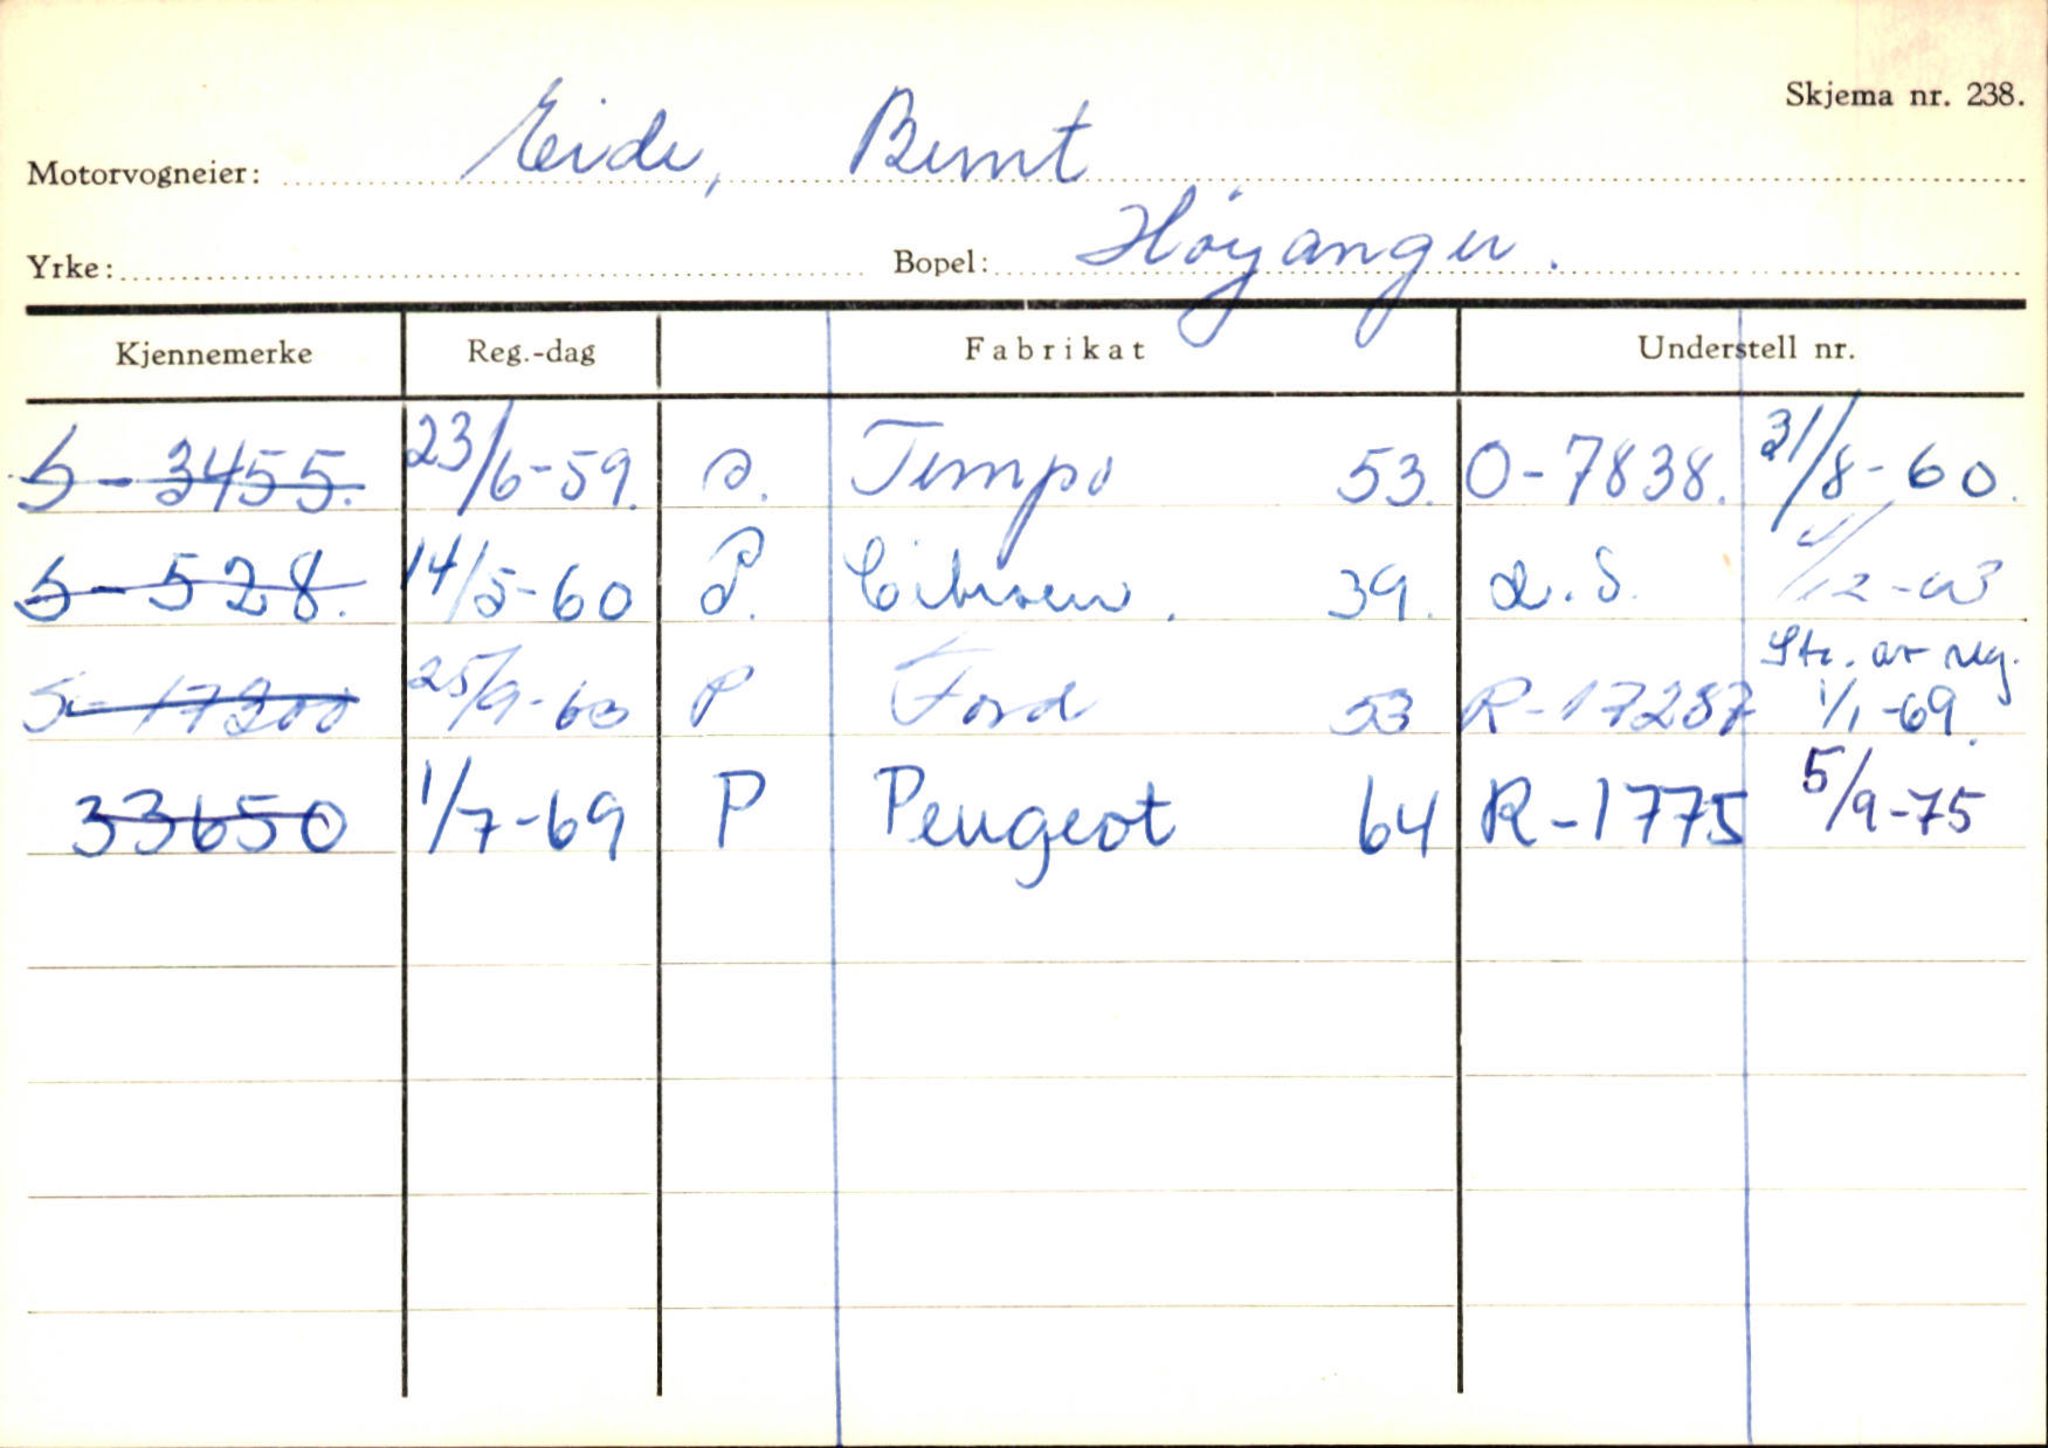 Skjema nr. 238.
Motorvogneier: Eide, Bernt
Yrke: Bopel: Høyanger.
Kjennemerke Reg.-dag Fabrikat Understell nr.
S-3455. 23/6-59. Tempo 53. O-7838. 31/8-60.
S-528. 14/5-60 P. Citroen. 39. L.S. /12-63
S-17200 25/9-63 P Ford 53 R-17287 Str. av reg. 1/1-69.
33650 1/7-69 P Peugeot 64 R-1775 5/9-75